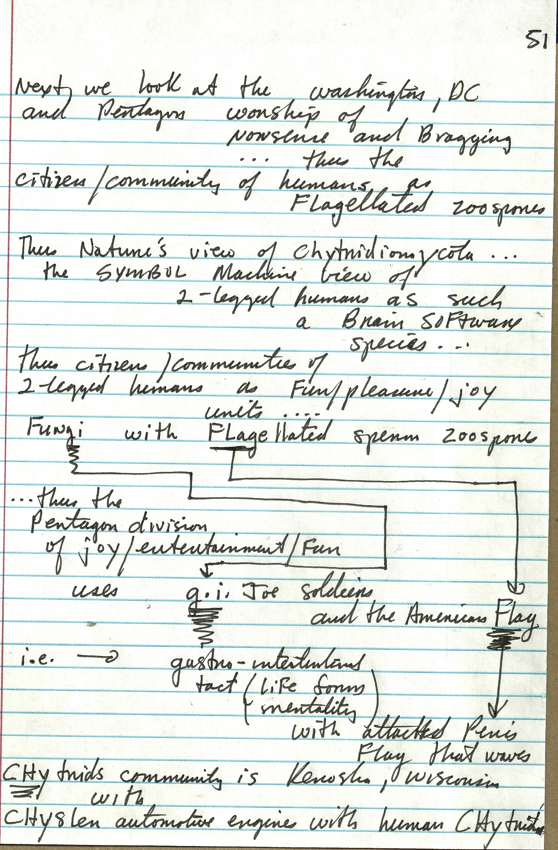 51
Next, we look at the Washington, DC
and Pentagon worship of
Nonsense and Bragging
... thus the
citizen/community of humans as
Flagellated zoospores
Thus Nature's view of Chytridiomycota ...
the SYMBOL Machine view of
2-legged humans as such
a Brain SOFTware
species...
thus citizens/communities of
2-legged humans as Fun/pleasure/joy
units ....
Fungi with FLagellated sperm zoospores
...thus the
Pentagon division
of joy/entertainment/Fun
uses g.i. Joe soldiers
and the American Flag
i.e. → gastro-intestinal
tract (Life forms
mentality)
with attached Penis
Flag that waves
CHytrids community is Kenosha, Wisconsin
with
CHysler automotive engines with human CHytrids